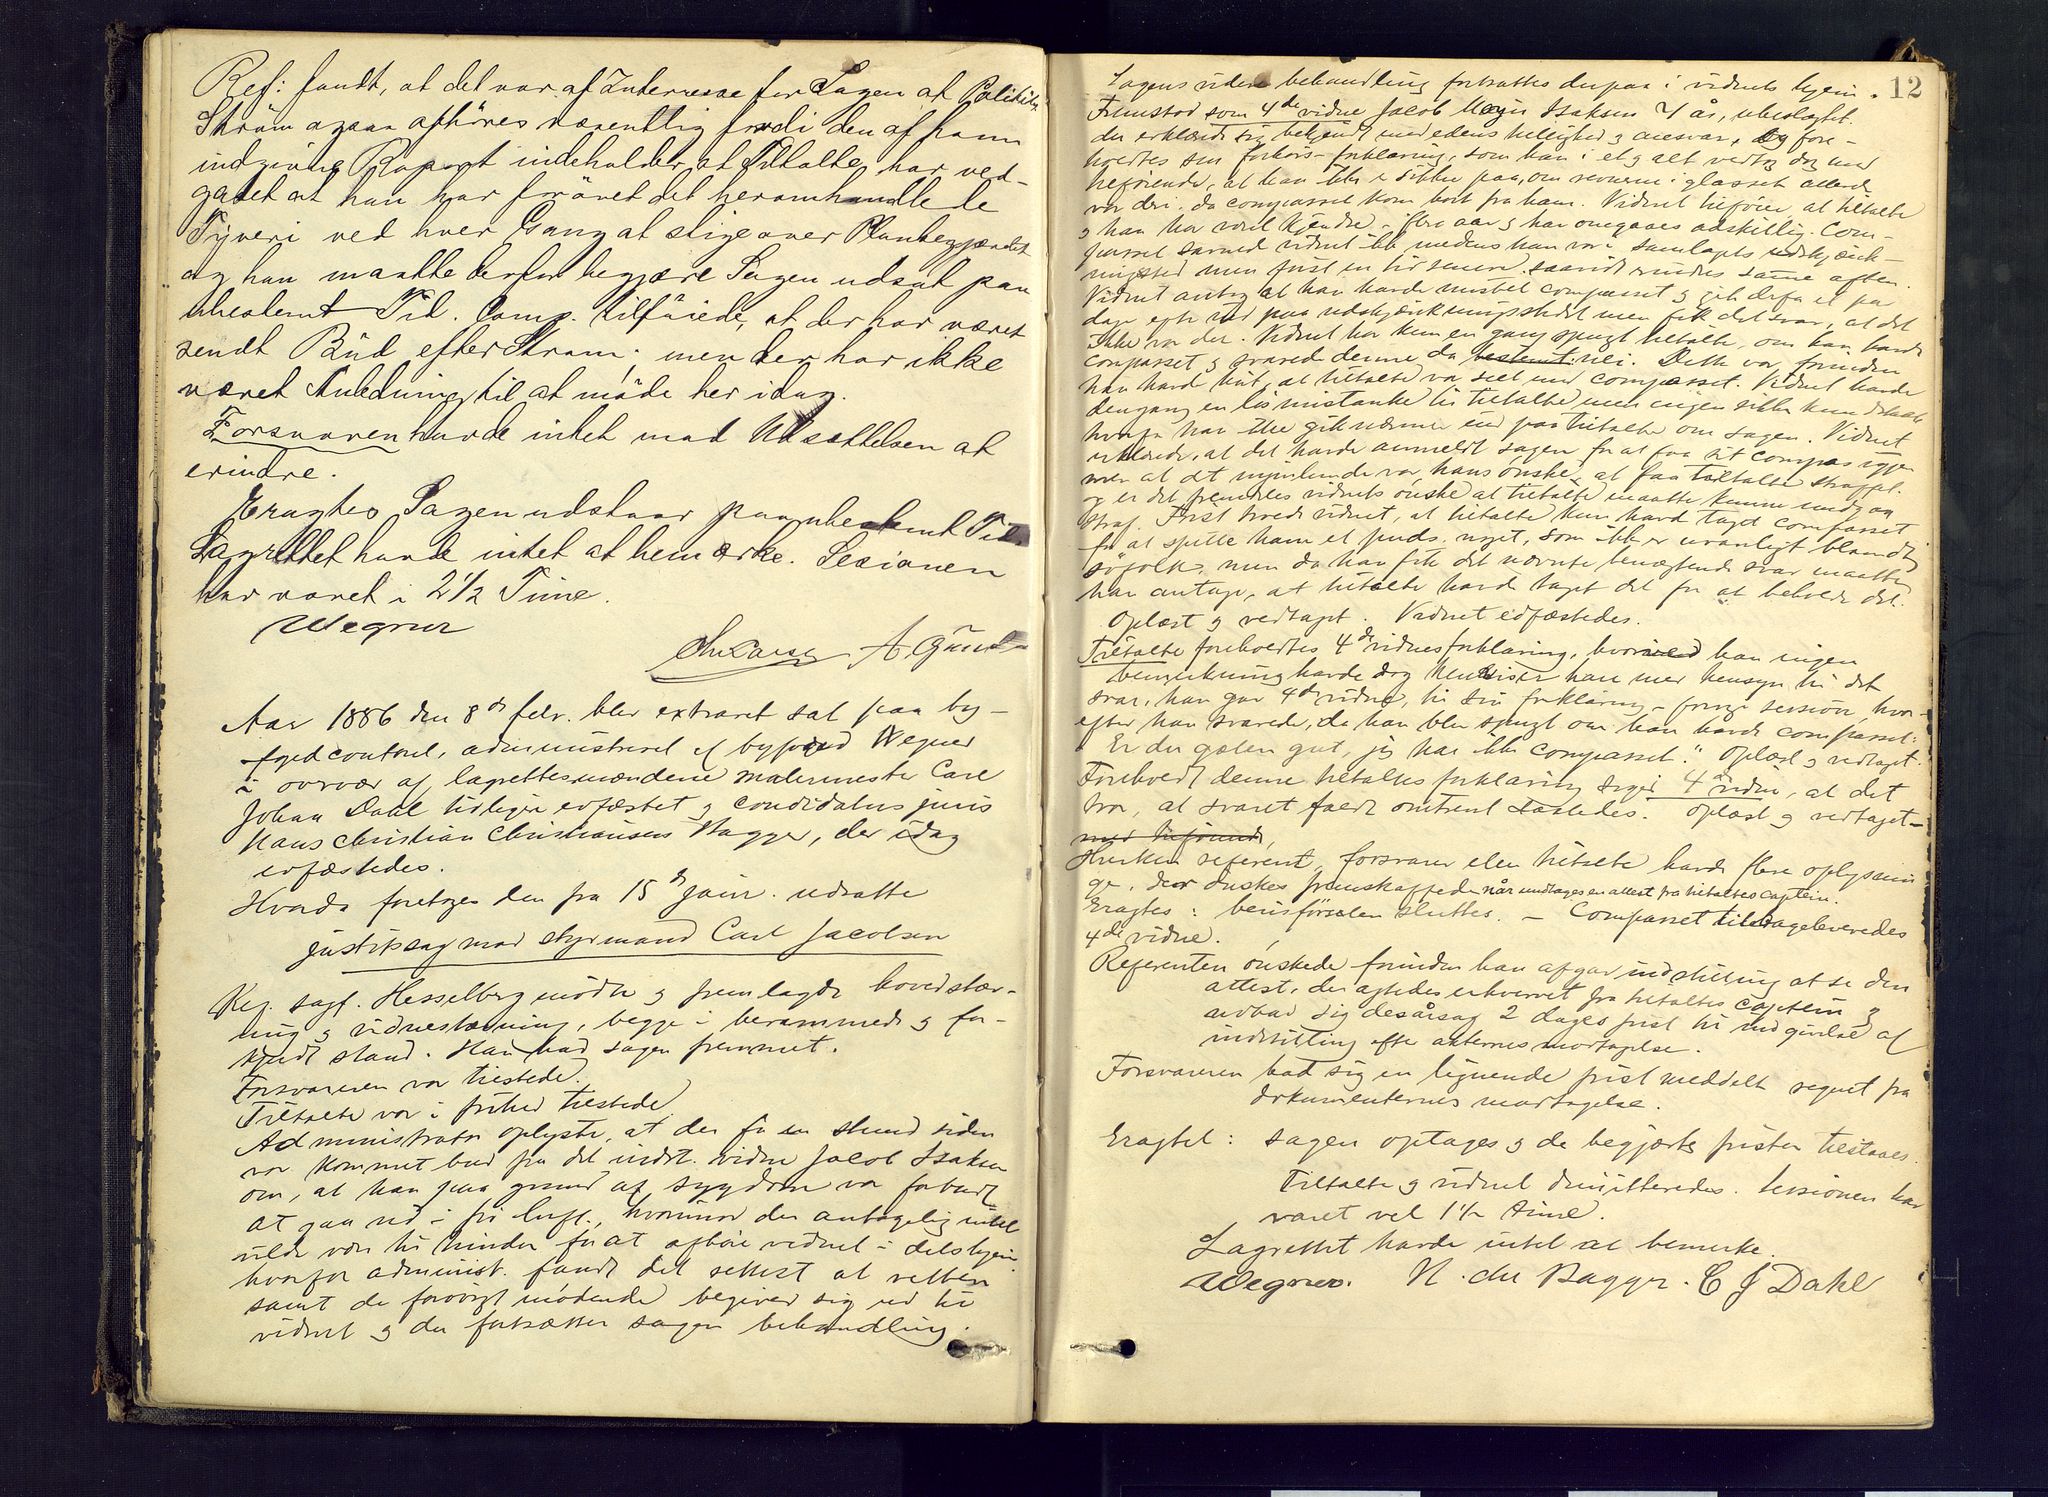 Ref: fandt, at det var af Interesse for Sagen at Politibtj.
Strøm ogsaa afhöres væsentlig fordi den af ham
indgivne Raport indeholder, at Tiltalte har ved-
gaaet at han har forövet det heromhandlede
Tyveri ved hver Gang at stige over Plankegjærdet
og han maatte derfor begjære Sagen udsat paa
ubestemt Tid. Comp. tilföiede, at der har været
sendt Bud efter Strøm; men der har ikke
været Anledning til at möde her idag.
Forsvaren havde intet mod Udsættelsen at
erindre.
Eragtes Sagen udstaar paa ubestemt Tid.
Lagrettet havde intet at bemærke. Sessionen
har varet i 2 1/2 Time.
Wegner
A. 
Aar 1886 den 8de febr. blev extraret sat paa by-
fogedcontoret, administreret af byfoged Wegner
i overvær af lagrettesmændene malermester Carl
Johan Dahl tidligere edfæstet og candidatus juris
Hans Christian Christiansen Bagger, der idag
edfæstedes.
Hvorda foretoges den fra 15de jan. udsatte
justitssag mod styrmand Carl Jacobsen
Reg. sagf. Hesselberg mödte og fremlagde hovedstæv-
ning og vidnestævning, begge i berammet og for-
kyndt stand. Han bad sagen fremmet.
Forsvareren var tilstede.
Tiltalte var i frihed tilstede.
Administrator oplyste, at der for en stund siden
var kommet bud fra det indst. vidne Jacob Isaksen
om, at han paa grund af sygdom var forbudt
at gaa ud i fri luft, hvorimod der antagelig intet
vilde være til hinder for at afhøre vidnet i dets hjem
hvorfor administ. fandt det rettest at retten
samt de forövrigt mödende begiver sig ud til
vidnet og der fortsætter sagens behandling.
12
Sagens videre behandling fortsattes derpaa i vidnets hjem.
Fremstod som 4de vidne Jacob Isaksen år, ubeslægtet.
der erklærede sig bekjendt med edens hellighed og ansvar, og fore-
holdtes sin forhörs-forklaring, som han i et og alt vedtog dog med
tilföiende, at han ikke er sikker paa, om revnerne i glasset allerede
var deri, da compasset kom bort fra ham. Vidnet tilföier at tiltalte
og han har været kjendte i flere aar og har omgaaes adskillig. Com-
passet savned vidnet ikke medens han var i samlagets udskjænk-
ningssted men først en tid senere saavidt mindes samme aften.
Vidnet antog at han havde mistet compasset og gik derfor et par
dage efter ned paa udskjænkningsstedet men fik det svar, at det
ikke var der. Vidnet har kun en gang spurgt tiltalte, om han havde
compasset og svarede denne da bestemt nei. Dette var, forinden
han havde hört, at tiltalte var seet med compasset. Vidnet havde
dengang en lös mistanke til tiltalte men ingen sikker kundskab
hvorfor han ikke gik nærmere ind paa tiltalte om sagen. Vidnet
erklærede, at det havde anmeldt sagen for at faa sit compas igjen
men at det ingenlunde var hans önske, at faa tiltalte straffet.
og er det fremdeles vidnets önske at tiltalte maatte kunne undgaa
straf. Først troede vidnet, at tiltalte kun havde taget compasset
for at spille ham et puds, noget, som ikke er uvanligt blandt
söfolk, men da han fik det nævnte benægtende svar maatte
han antage, at tiltalte havde taget det for at beholde det.
Oplæst og vedtaget. Vidnet edfæstedes.
Tiltalte foreholdtes 4de vidnes forklaring, hvorimod han ingen
bemerkning havde dog henviser han med hensyn til det
svar, han gav 4de vidne, til sin forklaring i forrige session, hvor-
efter han svarede, da han blev spurgt om han havde compasset:
"Er du galen gut, jeg har ikke compasset." Oplæst og vedtaget.
Foreholdt denne tiltaltes forklaring siger 4de vidne, at det
tror, at svaret faldt omtrent saaledes. Oplæst og vedtaget
med tilföiende,
Hverken referent, forsvarer eller tiltalte havde flere oplysnin
ger, der önskes fremskaffede når undtages en attest fra tiltaltes captein.
Eragtes: bevisførselen sluttes. – Compasset tilbageleveredes
4de vidne.
Referenten önskede forinden han afgav indstilling at se den
attest, der agtedes erhvervet fra tiltaltes captein og
udbad sig desårsag 2 dages frist til indgivelse af
indstilling efter akternes modtagelse.
Forsvareren bad sig en lignende frist meddelt regnet fra
dokumenternes modtagelse.
Eragtet: sagen optages og de begjærte frister tilstaaes.
Tiltalte og vidnet dimitteredes. Sessionen har
varet vel 1 1/2 time.
Lagrettet havde intet at bemerke.
Wegner. H. Chr Bagger. C J Dahl